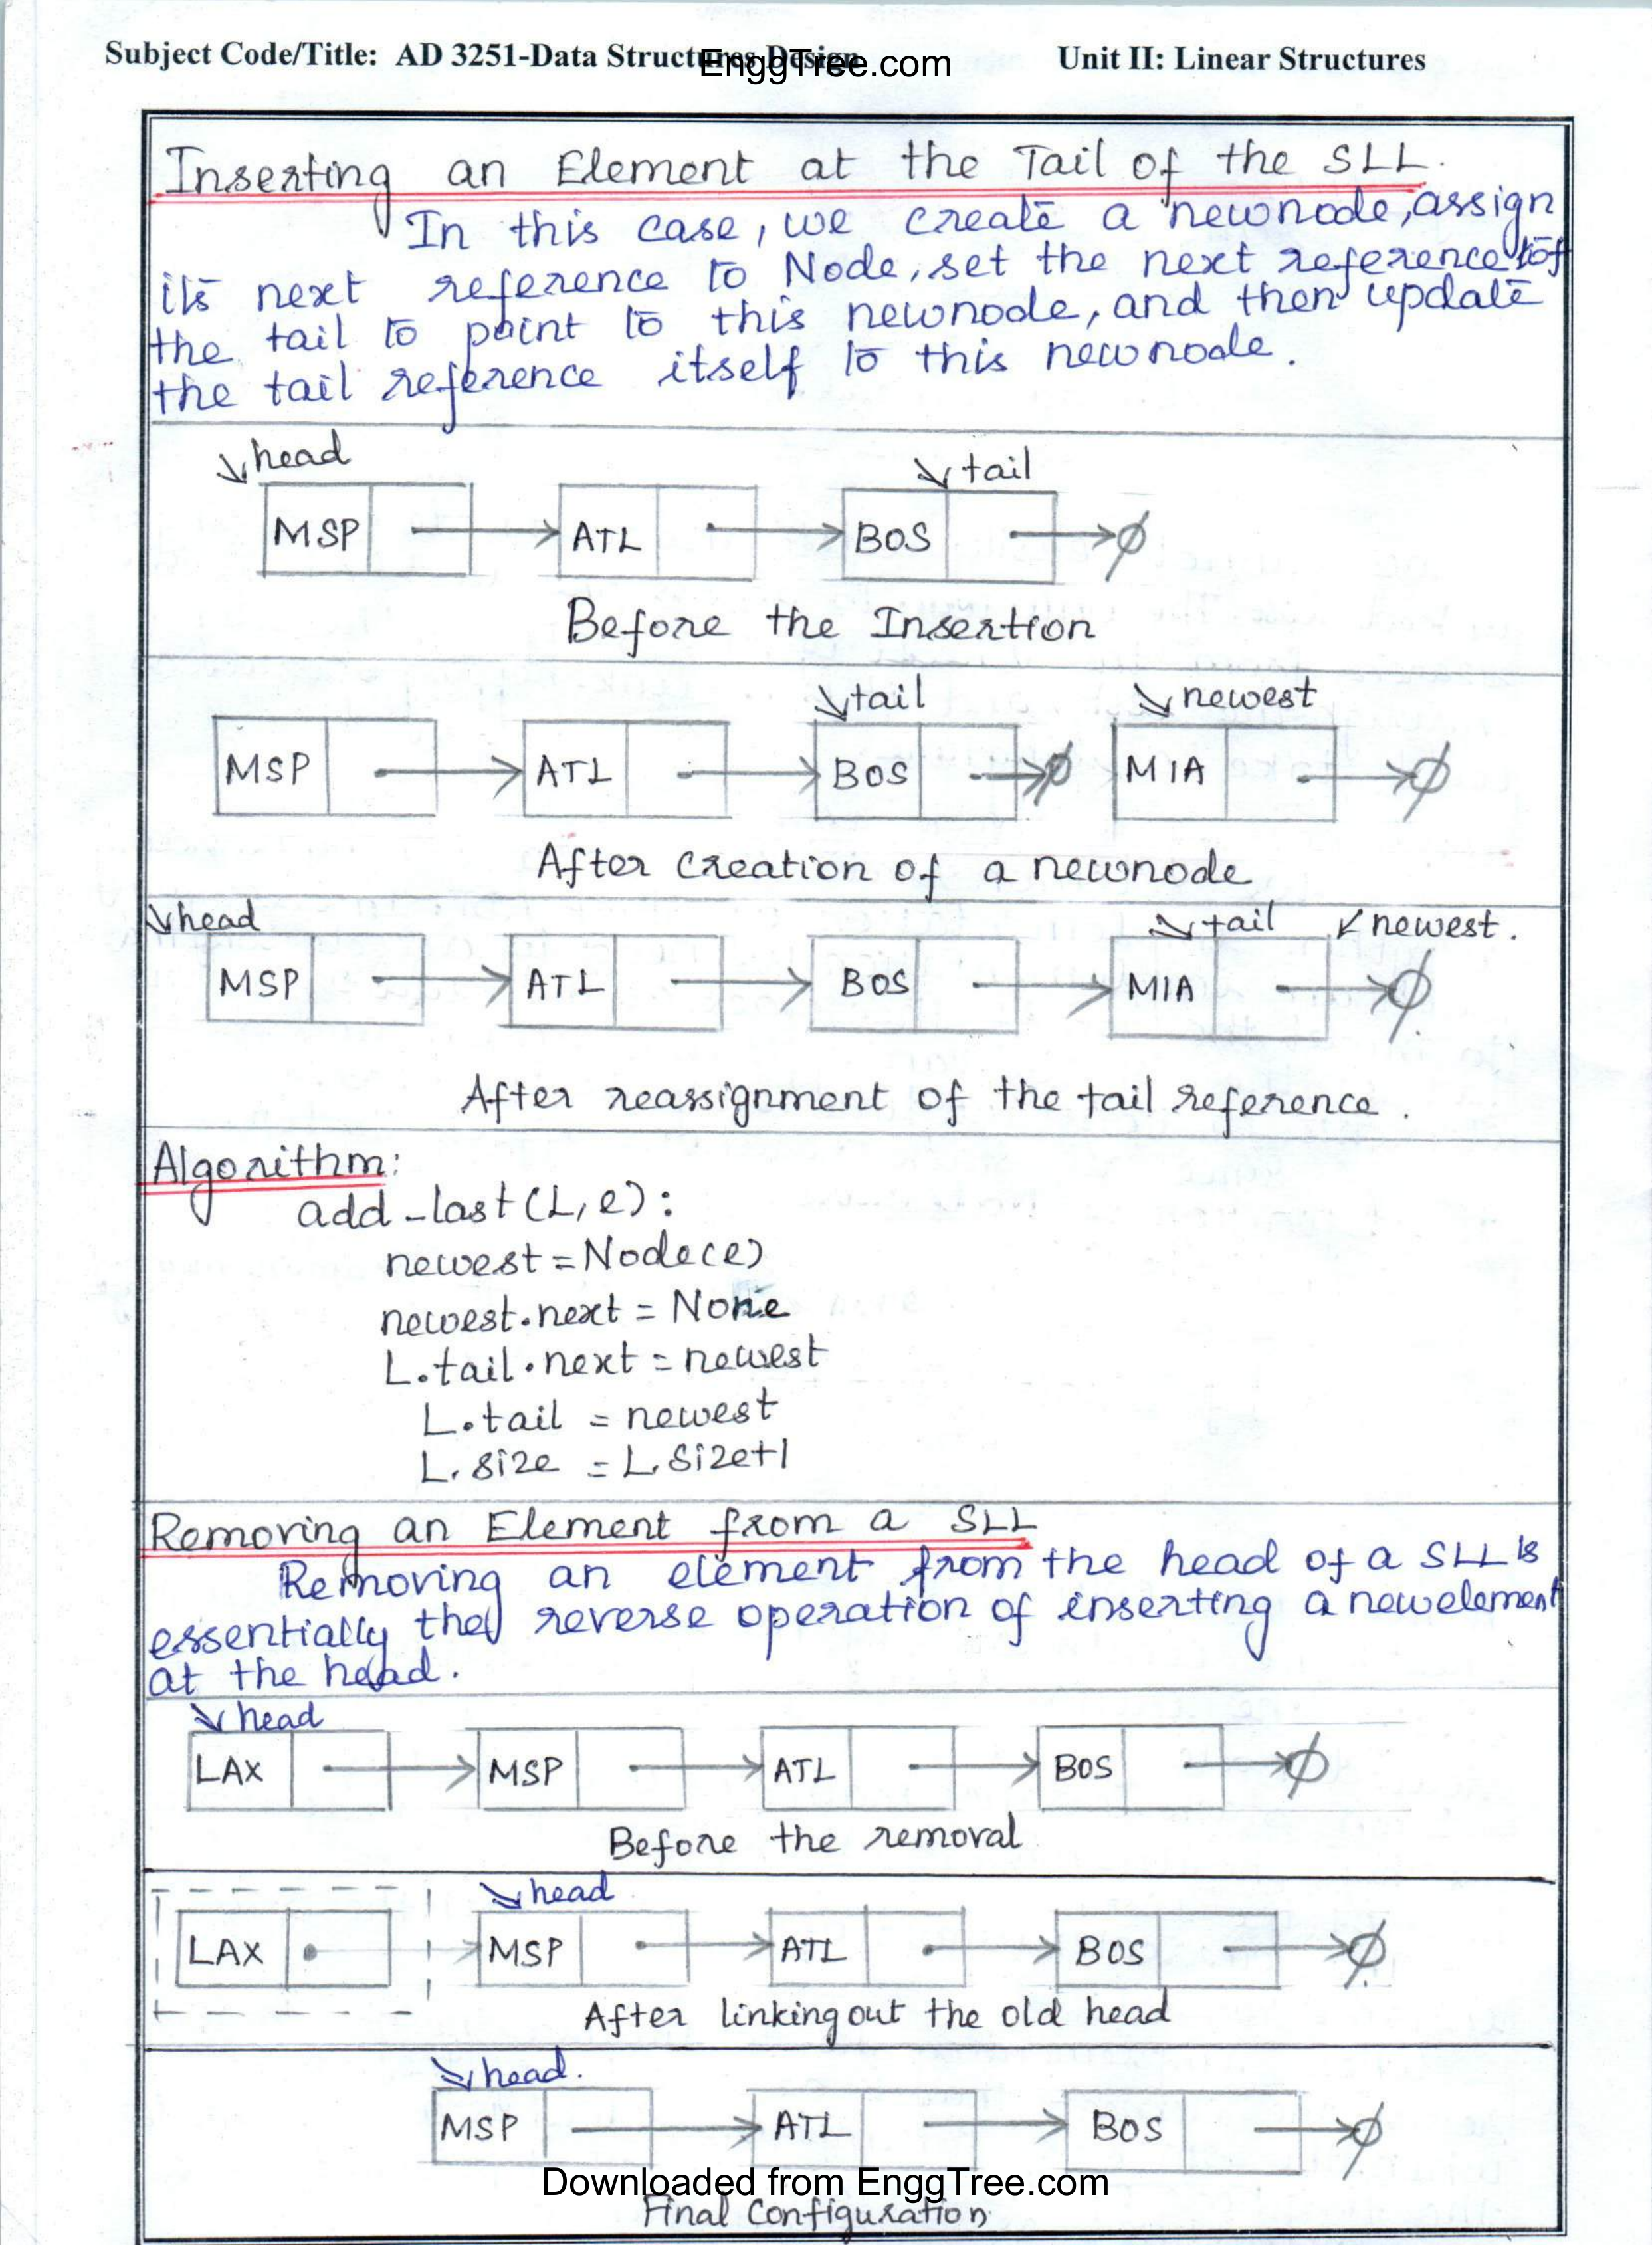 Subject Code/Title: AD 3251-Data Structures Design Unit II: Linear Structures
EnggTree.com
Inserting an Element at the Tail of the SLL.
In this case, we create a newnode, assign
its next reference to Node, set the next reference of
the tail to point to this newnode, and then update
the tail reference itself to this newnode.
head tail
MSP ATL BOS ∅
Before the Insertion
tail newest
MSP ATL BOS ∅ MIA ∅
After creation of a newnode
head tail newest.
MSP ATL BOS MIA ∅
After reassignment of the tail reference.
Algorithm:
add_last(L,e):
newest = Node(e)
newest.next = None
L.tail.next = newest
L.tail = newest
L.size = L.size+1
Removing an Element from a SLL
Removing an element from the head of a SLL is
essentially the reverse operation of inserting a new element
at the head.
head
LAX MSP ATL BOS ∅
Before the removal
head
LAX MSP ATL BOS ∅
After linking out the old head
head.
MSP ATL BOS ∅
Downloaded from EnggTree.com
Final Configuration